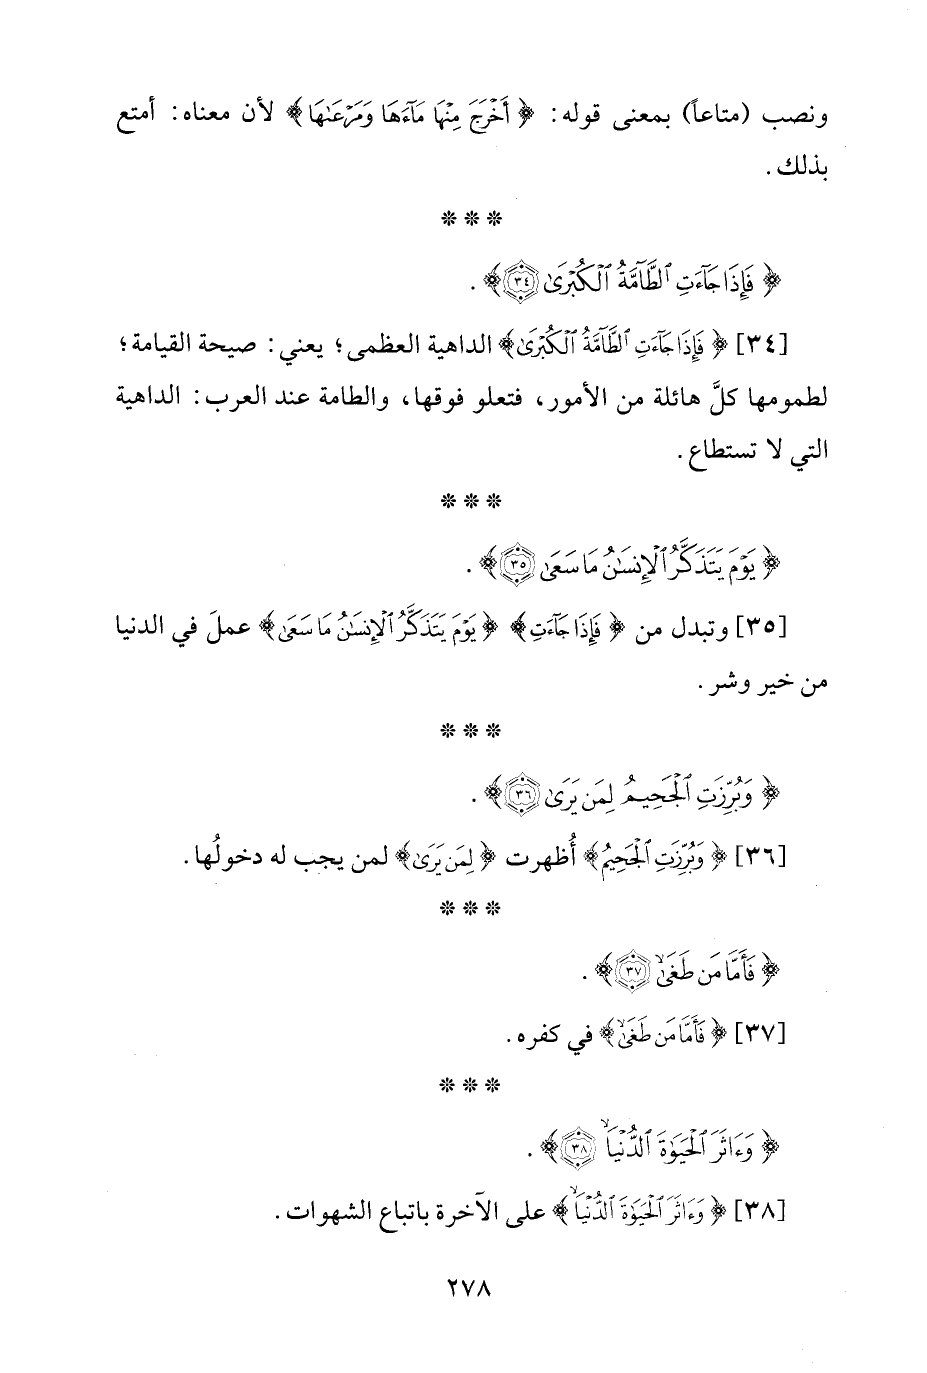 ونصب (متاعاً) بمعنى قوله: ﴿أَخْرَجَ مِنْهَا مَآءَهَا وَمَرْعَىٰهَا﴾ لأن معناه: أمتع
بذلك.
***
﴿فَإِذَا جَآءَتِ ٱلطَّآمَّةُ ٱلْكُبْرَىٰ ٣٤﴾.
[٣٤] ﴿فَإِذَا جَآءَتِ ٱلطَّآمَّةُ ٱلْكُبْرَىٰ﴾ الداهية العظمى؛ يعني: صيحة القيامة؛
لطمومها كلَّ هائلة من الأمور، فتعلو فوقها، والطامة عند العرب: الداهية
التي لا تستطاع.
***
﴿يَوْمَ يَتَذَكَّرُ ٱلْإِنسَٰنُ مَا سَعَىٰ ٣٥﴾.
[٣٥] وتبدل من ﴿فَإِذَا جَآءَتِ﴾ ﴿يَوْمَ يَتَذَكَّرُ ٱلْإِنسَٰنُ مَا سَعَىٰ﴾ عملَ في الدنيا
من خير وشر.
***
﴿وَبُرِّزَتِ ٱلْجَحِيمُ لِمَن يَرَىٰ ٣٦﴾.
[٣٦] ﴿وَبُرِّزَتِ ٱلْجَحِيمُ﴾ أُظهرت ﴿لِمَن يَرَىٰ﴾ لمن يجب له دخولُها.
***
﴿فَأَمَّا مَن طَغَىٰ ٣٧﴾.
[٣٧] ﴿فَأَمَّا مَن طَغَىٰ﴾ في كفره.
***
﴿وَءَاثَرَ ٱلْحَيَوٰةَ ٱلدُّنْيَا ٣٨﴾.
[٣٨] ﴿وَءَاثَرَ ٱلْحَيَوٰةَ ٱلدُّنْيَا﴾ على الآخرة باتباع الشهوات.
٢٧٨